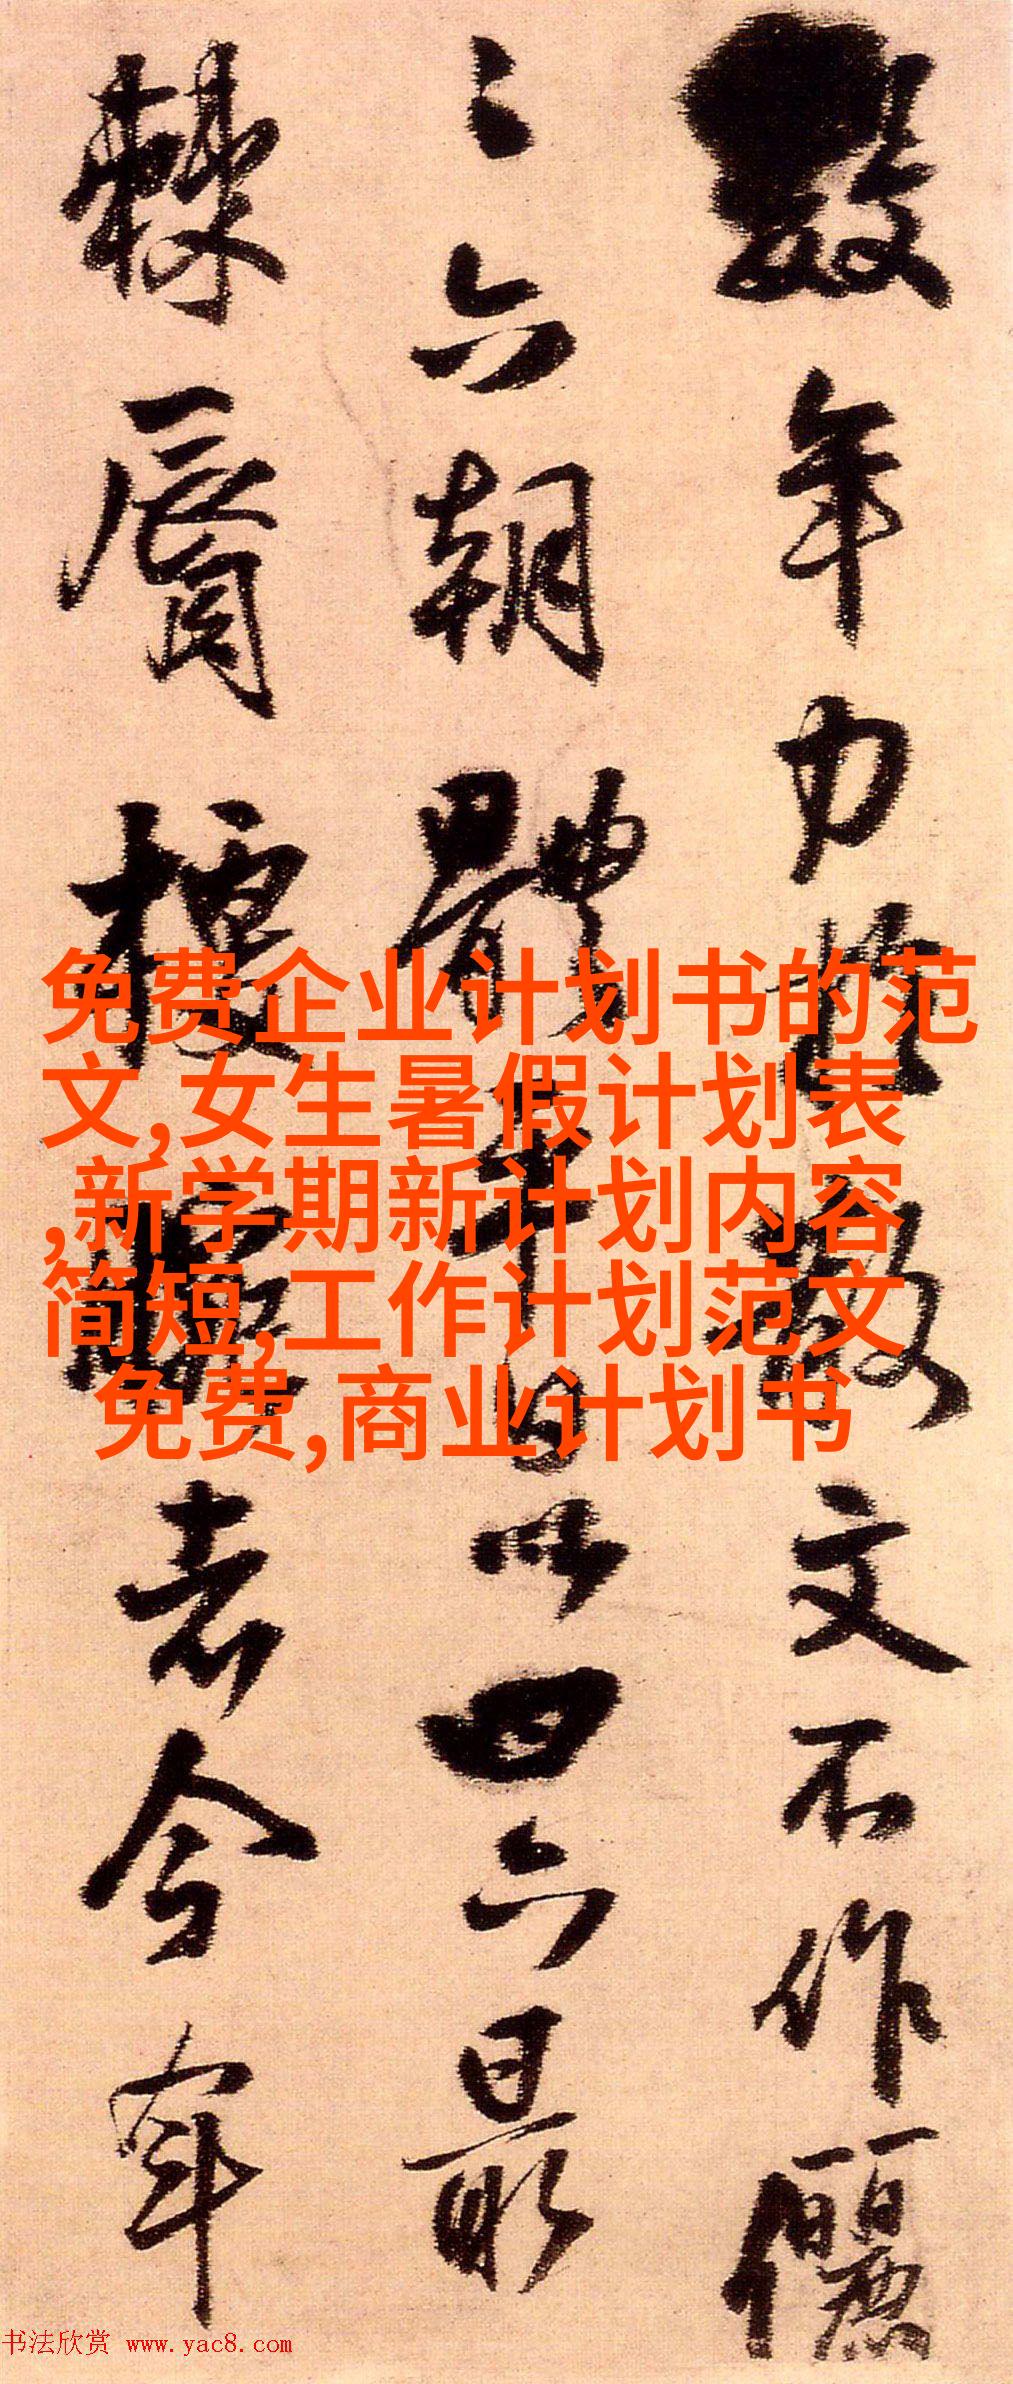 數年力於散文不作儷
六朝體日以四六最
棘脣今年
免费企业计划书的范
文,女生暑假计划表
,新学期新计划内容
简短,工作计划范文
免费,商业计划书
书法欣赏 www.yac8.com